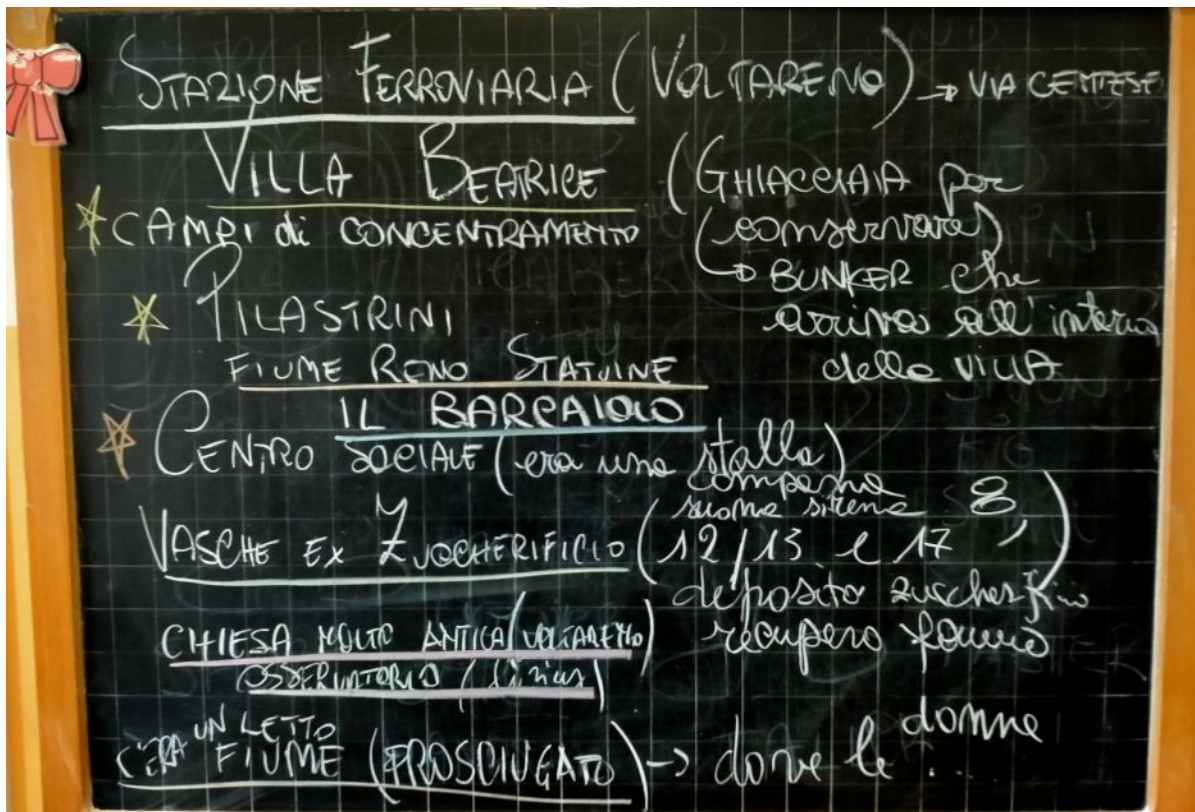 STAZIONE FERROVIARIA (VOLTARENO) → VIA CENTESE
VILLA BEATRICE (GHIACCIAIA per
conservare)
CAMPI di CONCENTRAMENTO
→ BUNKER che
arriva all'interno
della VILLA
PILASTRINI
FIUME RENO STATUINE
IL BARCAIOLO
CENTRO SOCIALE (era una stalla)
VASCHE EX ZUCCHERIFICIO (campana
suona sirena 8,
12/13 e 17)
deposito zuccherificio
recupero fauna
CHIESA MOLTO ANTICA (VOLTARENO)
OSSERVATORIO
C'ERA UN LETTO
FIUME (PROSCIUGATO) → dove le donne ...